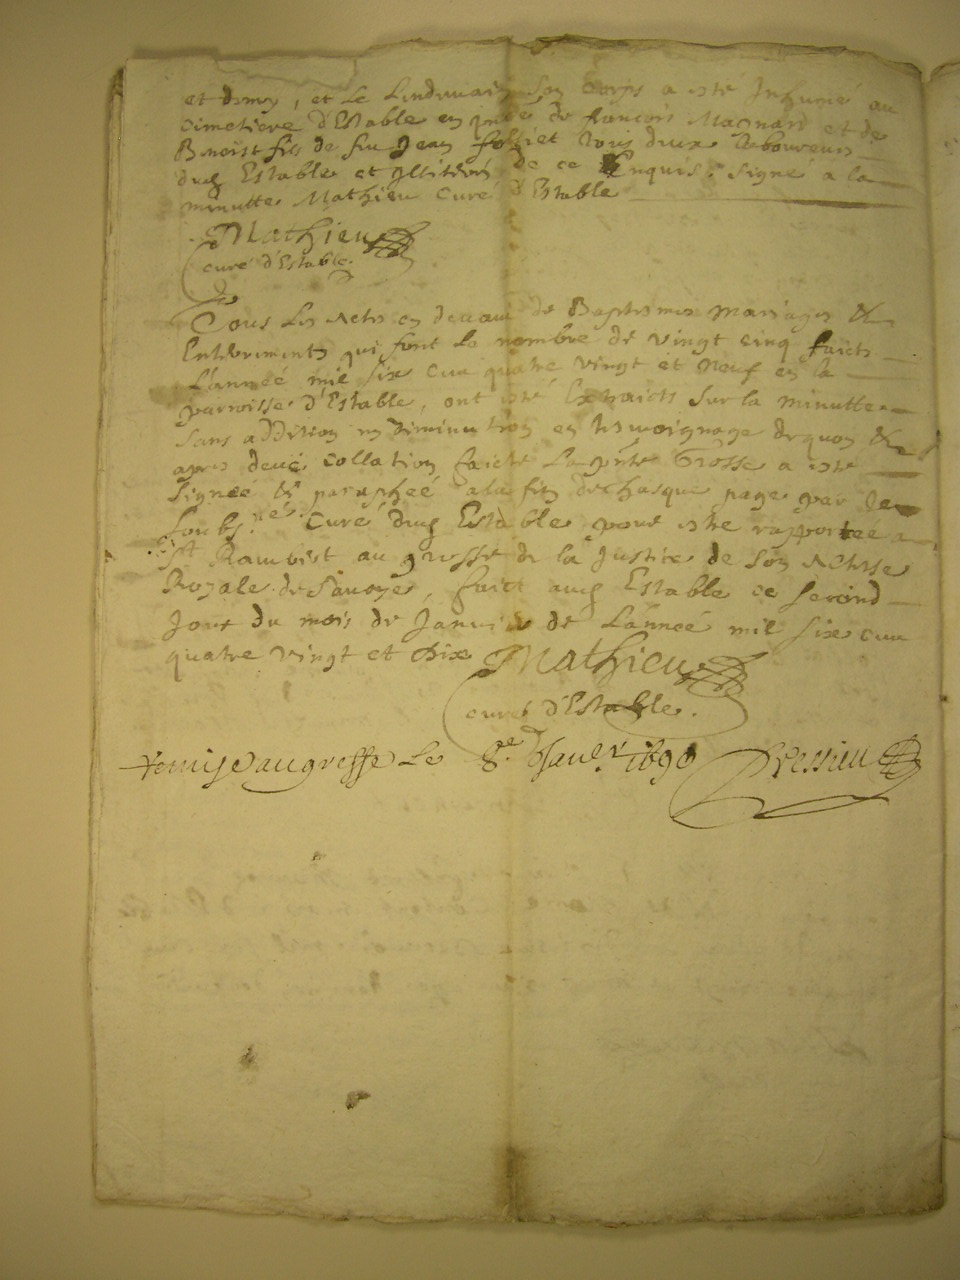 et demy, et le Lendemain son Corps a esté Inhumé au
Cimetiere d'Estable en pnce de françois Magnard et de
Benoist fils de feu Jean follliet tous deux laboureurs
dud Estable et Illiterés de ce Enquis. signé a la
minutte Mathieu Curé d'Estable
Mathieu
curé d'Estable.
Tous Les Actes cy devant de Baptesmes Mariages &
Enterrements qui font le nombre de vingt cinq faicts
L'anneé mil six cent quatre vingt et Neuf en la
parroisse d'Estable, ont esté Extraicts sur la minutte
sans addition ny Diminution en tesmoignage dequoy &
apres deue Collation faicte La pnte Grosse a esté
signeé & parapheé a la fin de chasque page par Le
soubs.né Curé dud Estable pour estre rapporteé a
St Rambert au greffe de la Justice de Son Altesse
Royale de Savoye, faict aud Estable ce second
Jour du mois de Janvier de L'anneé mil six cent
quatre vingt et Dix Mathieu
curé d'Estable.
remise au greffe Le 8.e Janv.r 1690 Dressieu